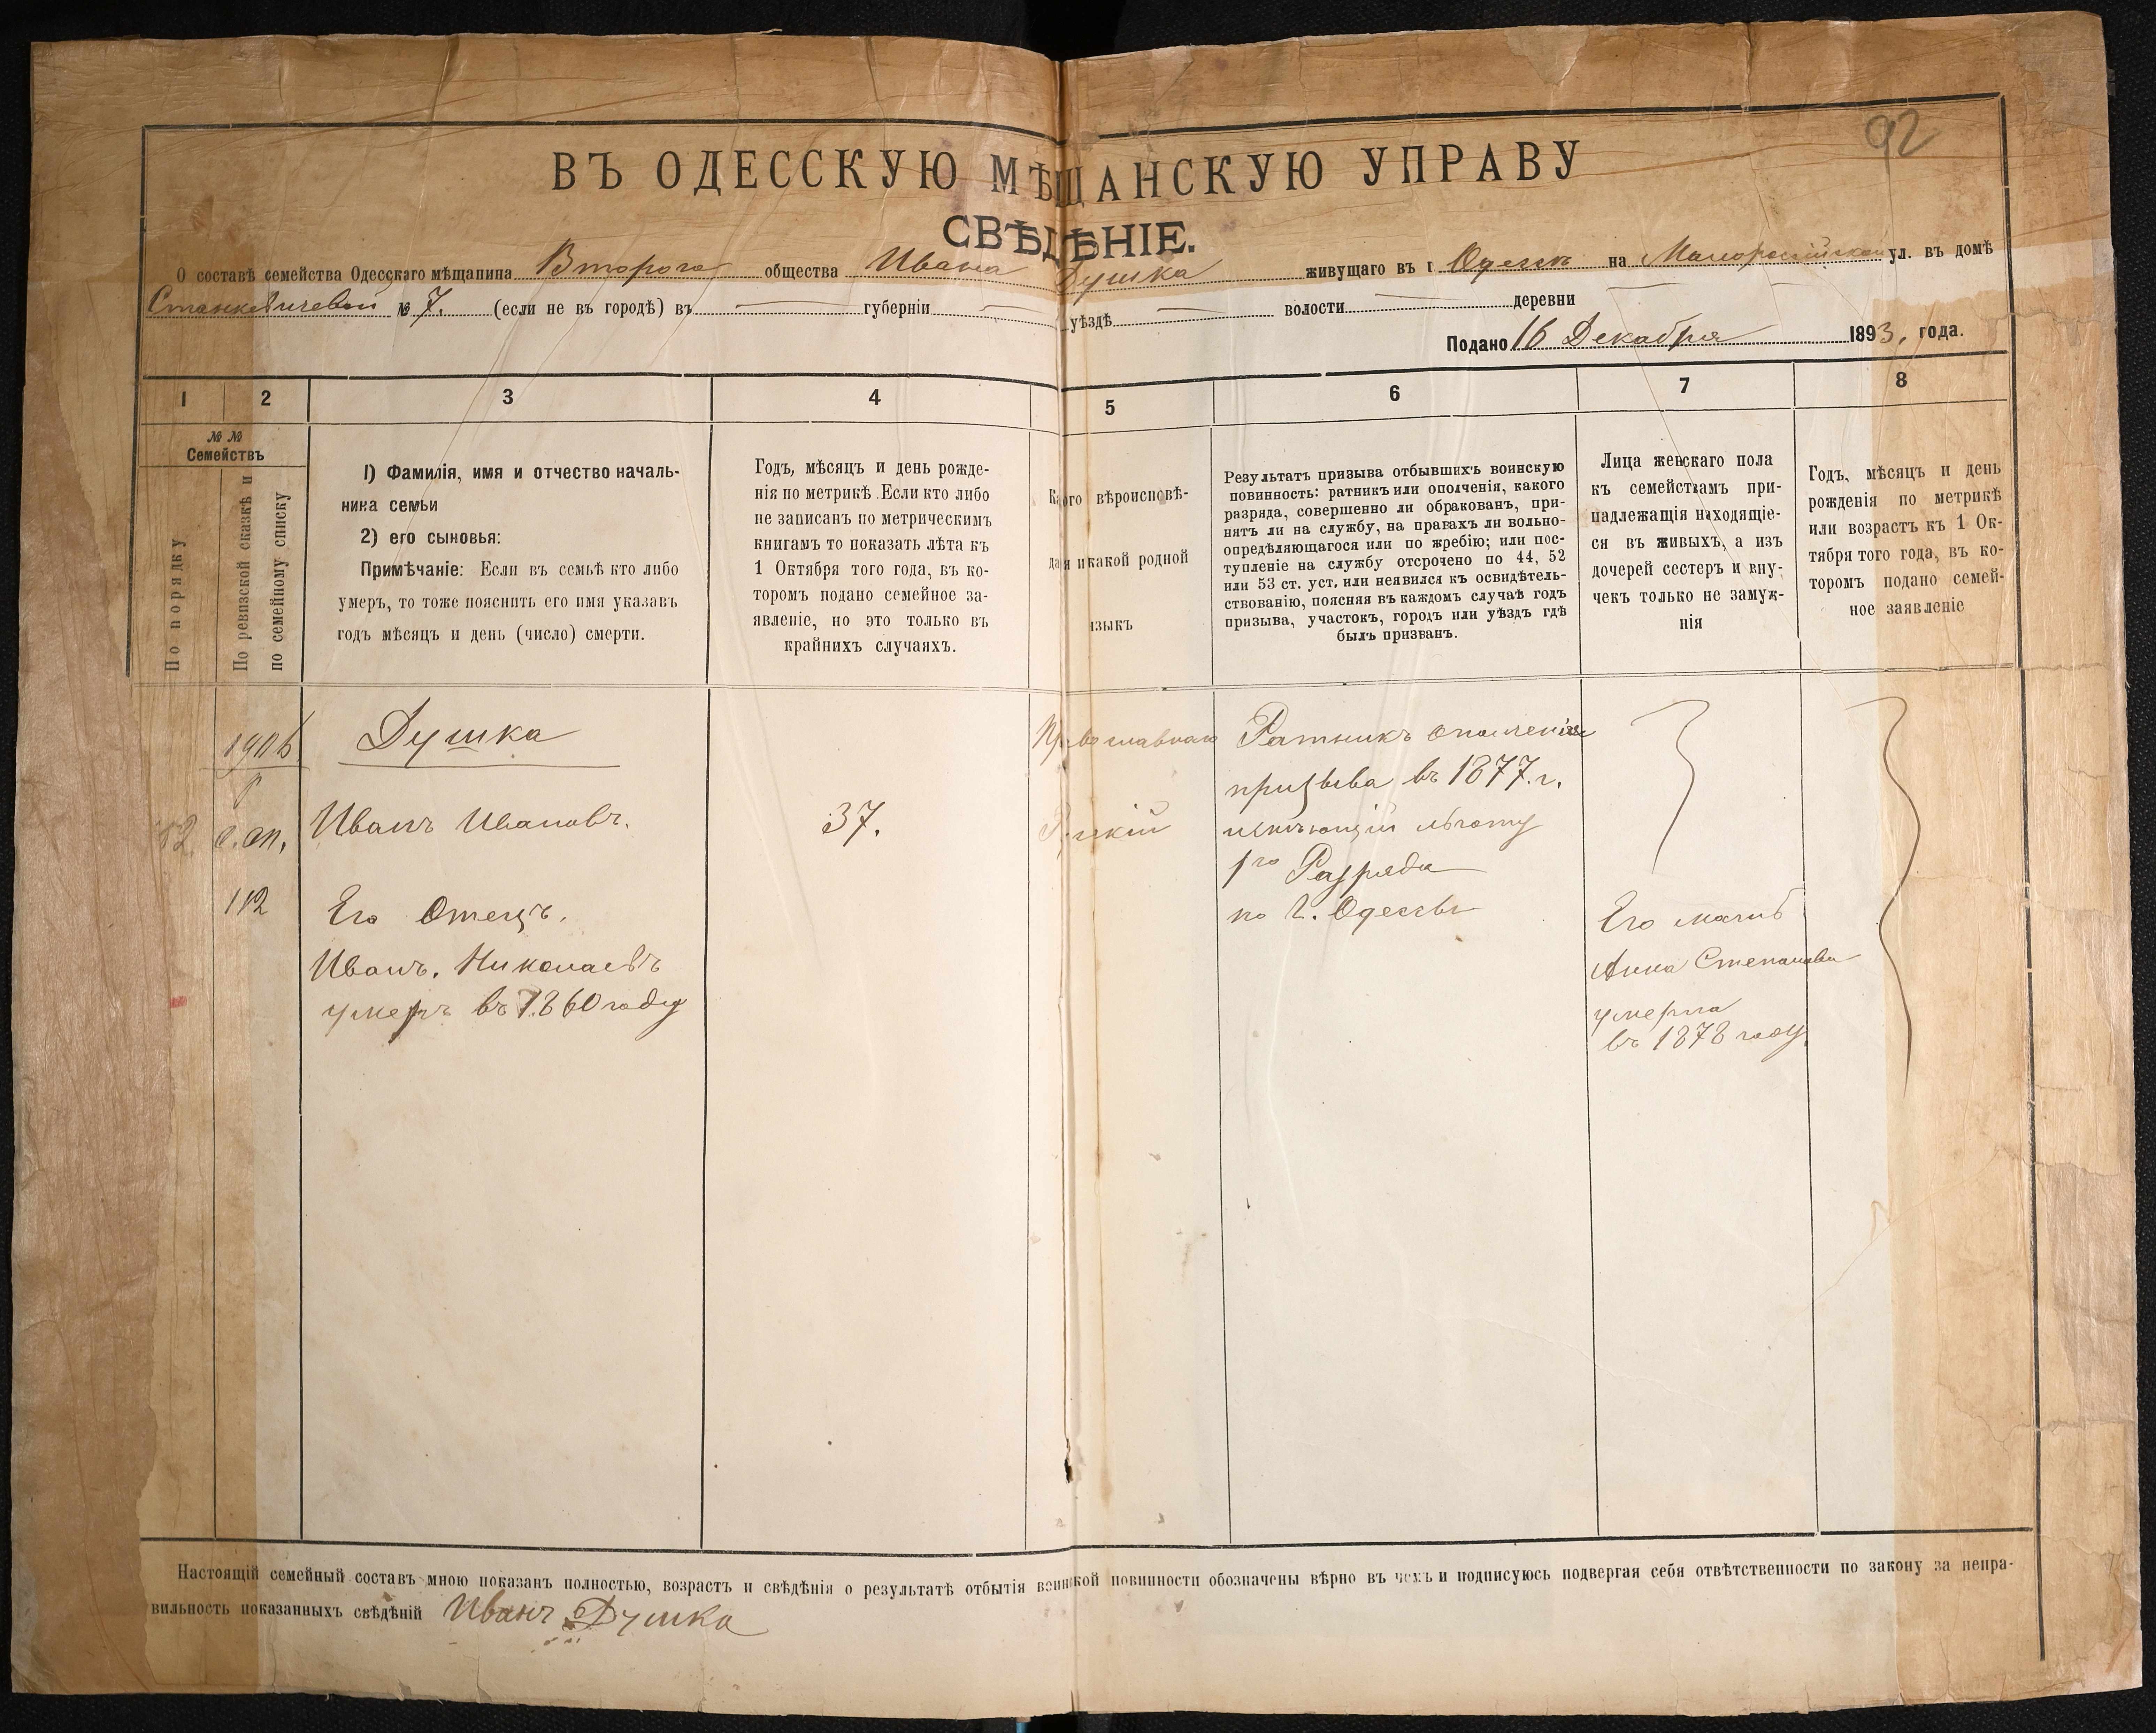 92
ВЪ ОДЕССКУЮ МѢЩАНСКУЮ УПРАВУ
СВѢДѢНІЕ.
О составѣ семейства Одесскаго мѣщанина Второго общества Ивана Душка живущаго въ г Одессѣ на Малороссійской ул. въ домѣ
Станкевичевой № 7. (если не въ городѣ) въ — губерніи — уѣздѣ — волости — деревни —
Подано 16 Декабря 1893, года.
1 2 3 4 5 6 7 8
№ №
Семействъ
По порядку
По ревизской сказкѣ и
по семейному списку
1) Фамилія, имя и отчество началь-
ника семьи
2) его сыновья:
Примѣчаніе: Если въ семьѣ кто либо
умеръ, то тоже пояснить его имя указавъ
годъ мѣсяцъ и день (число) смерти.
Годъ, мѣсяцъ и день рожде-
нія по метрикѣ. Если кто либо
не записанъ по метрическимъ
книгамъ то показать лѣта къ
1 Октября того года, въ ко-
торомъ подано семейное за-
явленіе, но это только въ
крайнихъ случаяхъ.
Какого вѣроисповѣ-
данія и какой родной
языкъ
Результатъ призыва отбывшихъ воинскую
повинность: ратникъ или ополченія, какого
разряда, совершенно ли обракованъ, при-
нятъ ли на службу, на правахъ ли вольно-
опредѣляющагося или по жребію; или пос-
тупленіе на службу отсрочено по 44, 52
или 53 ст. уст. или неявился къ освидѣтель-
ствованію, поясняя въ каждомъ случаѣ годъ
призыва, участокъ, городъ или уѣздъ гдѣ
былъ призванъ.
Лица женскаго пола
къ семействамъ при-
надлежащія находящіе-
ся въ живыхъ, а изъ
дочерей сестеръ и вну-
чекъ только не замуж-
нія
Годъ, мѣсяцъ и день
рожденія по метрикѣ
или возрастъ къ 1 Ок-
тября того года, въ ко-
торомъ подано семей-
ное заявленіе
Душка
Иванъ Ивановъ.
Его Отецъ.
Иванъ. Николаевъ
умеръ въ 1860 году
112
37.
Православнаго
Рускій
Ратникъ ополченія
призыва въ 1877. г.
имѣющій льготу
1го Разряда
по г. Одессѣ
Его мать
Анна Степанова
умерла
въ 1878 году.
Настоящій семейный составъ мною показанъ полностью, возрастъ и свѣдѣнія о результатѣ отбытія воинской повинности обозначены вѣрно въ чемъ и подписуюсь подвергая себя отвѣтственности по закону за непра-
вильность показанныхъ свѣдѣній Иванъ Душка